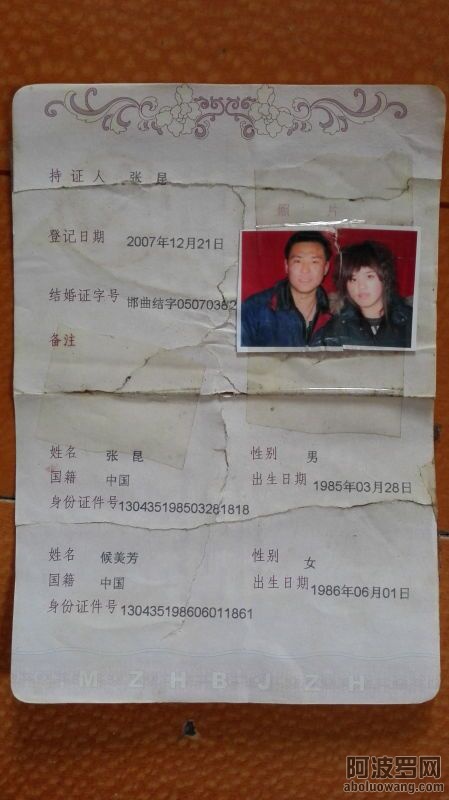 持证人 张昆
照 片
登记日期 2007年12月21日
结婚证字号 邯曲结字05070382
备注
姓名 张昆 性别 男
国籍 中国 出生日期 1985年03月28日
身份证件号 130435198503281818
姓名 候美芳 性别 女
国籍 中国 出生日期 1986年06月01日
身份证件号 130435198606011861
M Z H B J Z H
阿波罗网
aboluowang.com